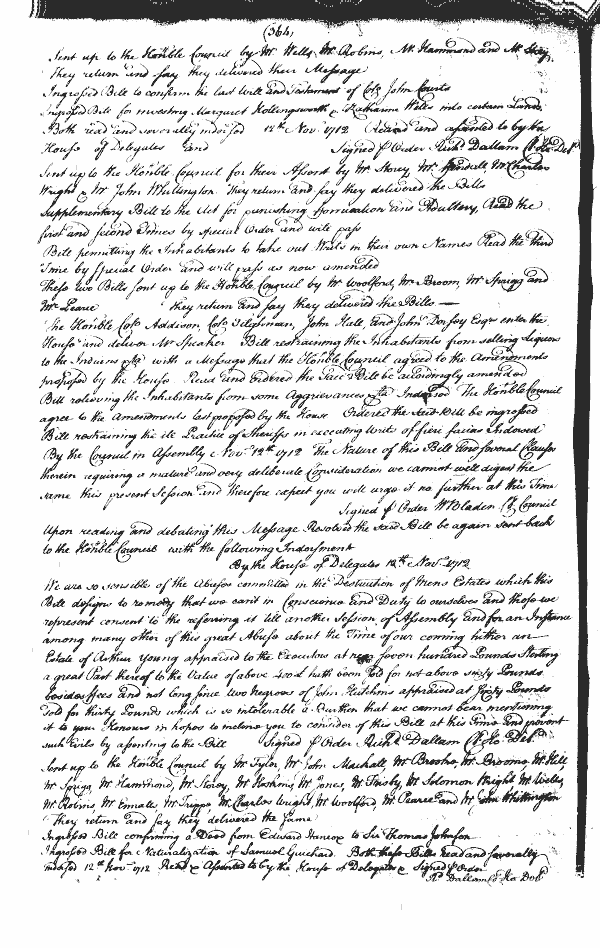 (364)
Sent up to the Hon:ble Council by Mr Wells, Mr Robins, Mr Hammond and Mr
They return and say they delivered their Message
Ingrossed Bill to confirm the last Will and Testament of Col: John Courts
Ingrossed Bill for investing Margaret Hollingsworth & Katharine Wells into certain Lands
Both read and severally indorsed 12th Nov: 1712. Read and assented to by the
House of Delegates and Signed p Order Richd Dallam Cl Ho: Del
Sent up to the Hon:ble Council for their Assent by Mr Storey, Mr Mr Charles
Wright & Mr John Whittington. They return and say they delivered the Bills
Supplementary Bill to the Act for punishing fornication and Adultery, Read the
first and second times by special Order and will pass
Bill permitting the Inhabitants to take out Writs in their own Names Read the third
Time by Special Order and will pass as now amended
These two Bills sent up to the Hon:ble Council by Mr Woolford, Mr Broom, Mr Sprigg and
Mr Pearce & they return and say they delivered the Bills —
The Hon:ble Col: Addison, Col: Tilghman, John Hall and John Dorsey Esqrs enter the
House and deliver Mr Speaker Bill restraining the Inhabitants from selling Liquors
to the Indians &ca with a Message that the Hon:ble Council agreed to the Amendments
proposed by the House. Read and ordered the said Bill be accordingly amended
Bill relieving the Inhabitants from some Aggrievances &ca Indorsed The Hon:ble Council
agree to the Amendments last proposed by the House Ordered the said Bill be ingrossed
Bill restraining the ill Practice of Sheriffs in executing Writs of fieri facias Indorsed
By the Council in Assembly Nov: 12th 1712 The Nature of this Bill and several Clauses
therein requiring a mature and very deliberate Consideration we cannot well digest the
same this present Session and therefore expect you will urge it no further at this Time
Signed p Order W Bladen Cl Council
Upon reading and debating this Message Resolved the said Bill be again sent back
to the Hon:ble Council with the following Indorsment
By the House of Delegates 12th Nov: 1712
We are so sensible of the Abuses committed in the Destruction of Mens Estates which this
Bill designs to remedy that we can't in Conscience and Duty to ourselves and those we
represent consent to the referring it till another Session of Assembly and for an Instance
among many other of this great Abuse about the Time of our coming hither an
Estate of Arthur Young appraised to the Executors at near seven hundred Pounds Sterling
a great Part thereof to the Value of above 400£ hath been sold for not above sixty Pounds
besides fees and not long since two Negroes of John appraised at Sixty Pounds
sold for thirty Pounds which is so intolerable a Burthen that we cannot bear mentioning
it to your Honours in hopes to incline you to consider of this Bill at this time and prevent
such Evils by assenting to the Bill Signed p Order Richd Dallam Cl Ho: Del
Sent up to the Hon:ble Council by Mr Tyler, Mr John Mackall, Mr Mr Broome, Mr Hill
Mr Sprigg, Mr Hammond, Mr Storey, Mr Hoskins, Mr Jones, Mr Frisby, Mr Solomon Wright, Mr Wells,
Mr Robins, Mr Ennals, Mr Trippe, Mr Charles Wright, Mr Woolford, Mr Pearce and Mr John Whittington
They return and say they delivered the same
Ingrossed Bill confirming a Deed from Edward to Sir Thomas Johnson
Ingrossed Bill for Naturalization of Samuel Guichard. Both these Bills read and severally
indorsed 12th Nov: 1712 Read & Assented to by the House of Delegates & Signed p Order
Rd Dallam Cl Ho Del